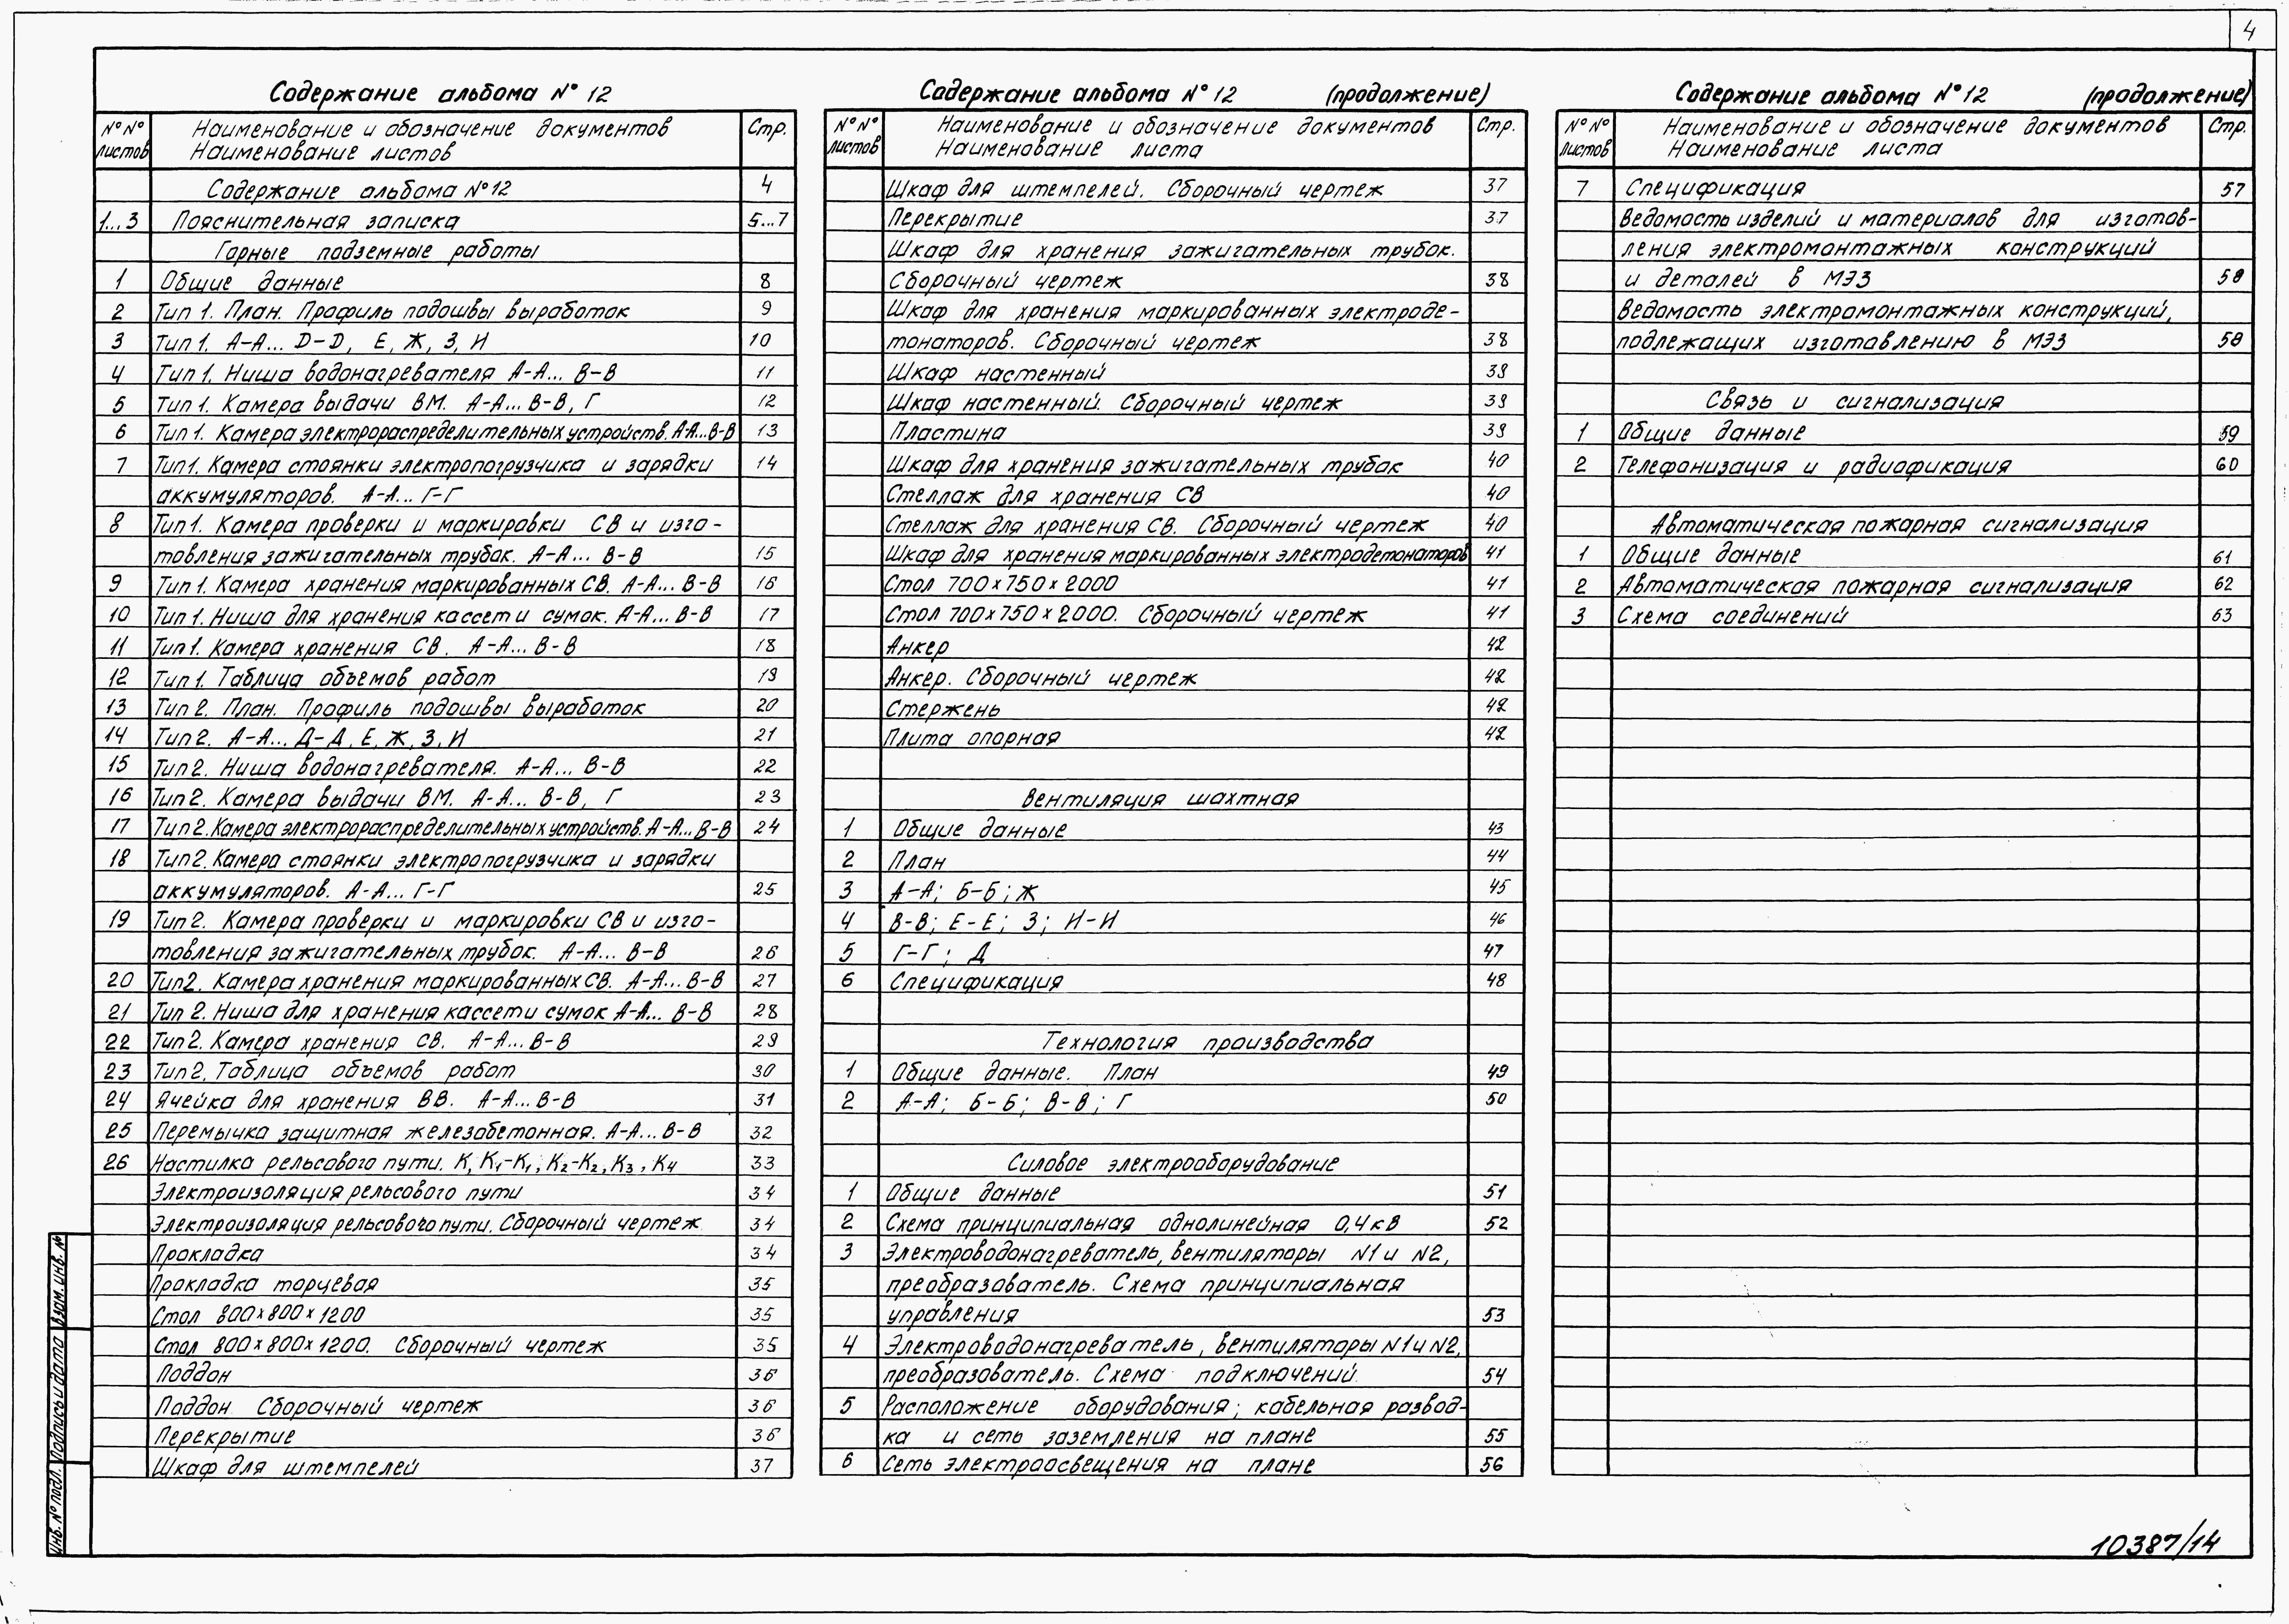 4
Содержание альбома №12
№№ листов Наименование и обозначение документов Наименование листов Стр.
Содержание альбома №12 4
1...3 Пояснительная записка 5...7
Горные подземные работы
1 Общие данные 8
2 Тип 1. План. Профиль подошвы выработок 9
3 Тип 1. А-А... D-D, Е, Ж, З, И 10
4 Тип 1. Ниша водонагревателя А-А... В-В 11
5 Тип 1. Камера выдачи ВМ. А-А... В-В, Г 12
6 Тип 1. Камера электрораспределительных устройств. А-А...В-В 13
7 Тип 1. Камера стоянки электропогрузчика и зарядки 14
аккумуляторов. А-А... Г-Г
8 Тип 1. Камера проверки и маркировки СВ и изго-
товления зажигательных трубок. А-А... В-В 15
9 Тип 1. Камера хранения маркированных СВ. А-А... В-В 16
10 Тип 1. Ниша для хранения кассет и сумок. А-А... В-В 17
11 Тип 1. Камера хранения СВ. А-А... В-В 18
12 Тип 1. Таблица объемов работ 19
13 Тип 2. План. Профиль подошвы выработок 20
14 Тип 2. А-А... Д-Д, Е, Ж, З, И 21
15 Тип 2. Ниша водонагревателя. А-А... В-В 22
16 Тип 2. Камера выдачи ВМ. А-А... В-В, Г 23
17 Тип 2. Камера электрораспределительных устройств. А-А... В-В 24
18 Тип 2. Камера стоянки электропогрузчика и зарядки
аккумуляторов. А-А... Г-Г 25
19 Тип 2. Камера проверки и маркировки СВ и изго-
товления зажигательных трубок. А-А... В-В 26
20 Тип 2. Камера хранения маркированных СВ. А-А... В-В 27
21 Тип 2. Ниша для хранения кассет и сумок А-А... В-В 28
22 Тип 2. Камера хранения СВ. А-А... В-В 29
23 Тип 2. Таблица объемов работ 30
24 Ячейка для хранения ВВ. А-А... В-В 31
25 Перемычка защитная железобетонная. А-А... В-В 32
26 Настилка рельсового пути. К, К1-К1, К2-К2, К3, К4 33
Электроизоляция рельсового пути 34
Электроизоляция рельсового пути. Сборочный чертеж 34
Прокладка 34
Прокладка торцевая 35
Стол 800×800×1200 35
Стол 800×800×1200. Сборочный чертеж 35
Поддон 36
Поддон. Сборочный чертеж 36
Перекрытие 36
Шкаф для штемпелей 37
Содержание альбома №12 (продолжение)
№№ листов Наименование и обозначение документов Наименование листа Стр.
Шкаф для штемпелей. Сборочный чертеж 37
Перекрытие 37
Шкаф для хранения зажигательных трубок.
Сборочный чертеж 38
Шкаф для хранения маркированных электроде-
тонаторов. Сборочный чертеж 38
Шкаф настенный 39
Шкаф настенный. Сборочный чертеж 39
Пластина 39
Шкаф для хранения зажигательных трубок 40
Стеллаж для хранения СВ 40
Стеллаж для хранения СВ. Сборочный чертеж 40
Шкаф для хранения маркированных электродетонаторов 41
Стол 700×750×2000 41
Стол 700×750×2000. Сборочный чертеж 41
Анкер 42
Анкер. Сборочный чертеж 42
Стержень 42
Плита опорная 42
Вентиляция шахтная
1 Общие данные 43
2 План 44
3 А-А; Б-Б; Ж 45
4 В-В; Е-Е; З; И-И 46
5 Г-Г; Д 47
6 Спецификация 48
Технология производства
1 Общие данные. План 49
2 А-А; Б-Б; В-В; Г 50
Силовое электрооборудование
1 Общие данные 51
2 Схема принципиальная однолинейная 0,4кВ 52
3 Электроводонагреватель, вентиляторы N1 и N2,
преобразователь. Схема принципиальная
управления 53
4 Электроводонагреватель, вентиляторы N1 и N2,
преобразователь. Схема подключений. 54
5 Расположение оборудования; кабельная развод-
ка и сеть заземления на плане 55
6 Сеть электроосвещения на плане 56
Содержание альбома №12 (продолжение)
№№ листов Наименование и обозначение документов Наименование листа Стр.
7 Спецификация 57
Ведомость изделий и материалов для изготов-
ления электромонтажных конструкций
и деталей в МЭЗ 58
Ведомость электромонтажных конструкций,
подлежащих изготовлению в МЭЗ 58
Связь и сигнализация
1 Общие данные 59
2 Телефонизация и радиофикация 60
Автоматическая пожарная сигнализация
1 Общие данные 61
2 Автоматическая пожарная сигнализация 62
3 Схема соединений 63
Инв. № подл. Подпись и дата Взам. инв. №
10387/14